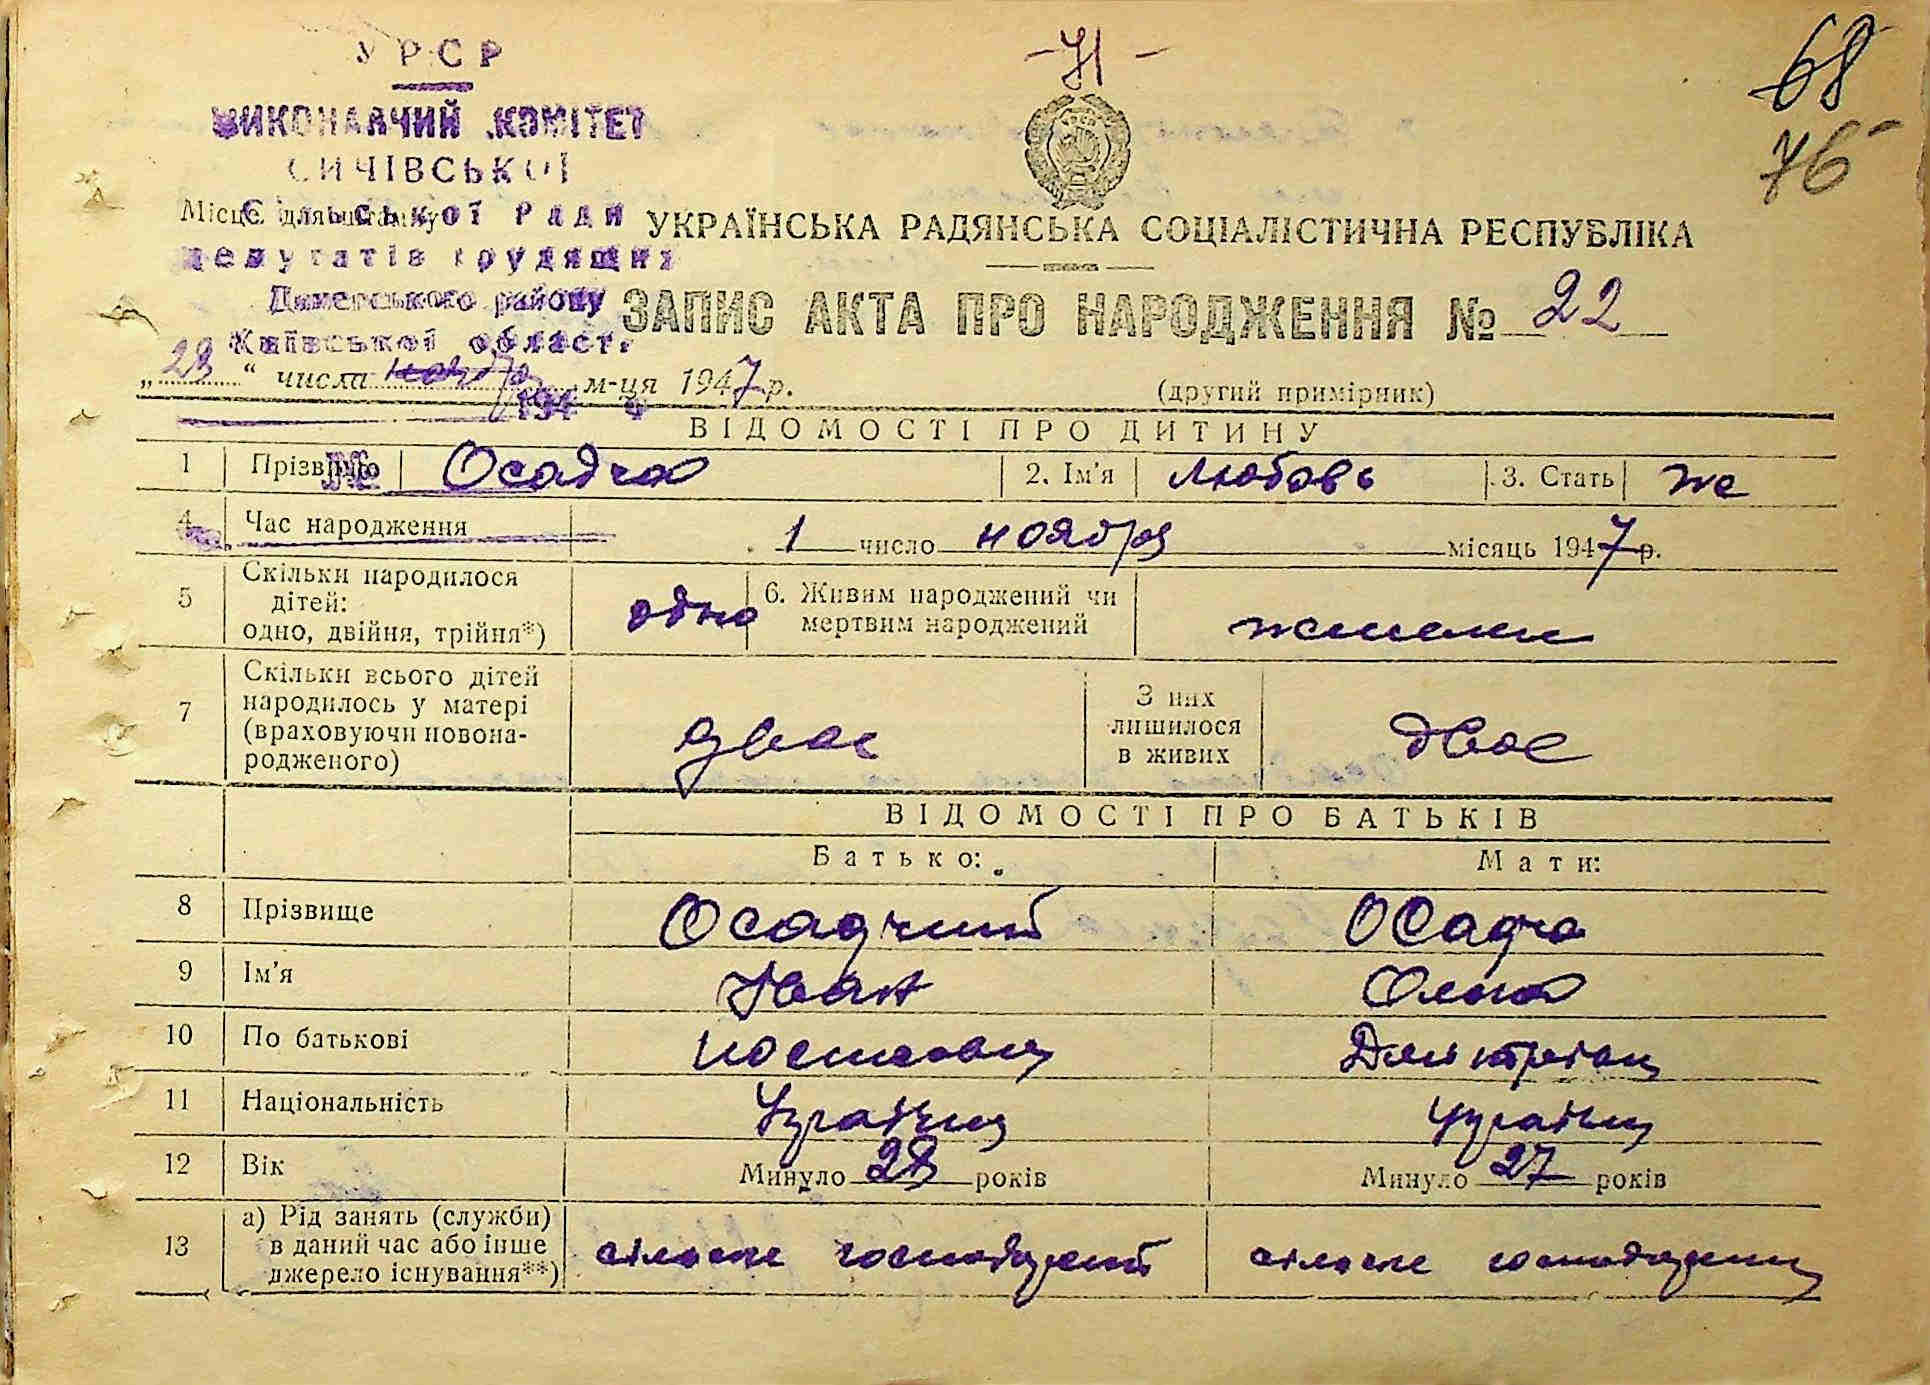 -71-
68
76
УРСР
ВИКОНАВЧИЙ КОМІТЕТ
СИЧІВСЬКОЇ
Сільської Ради
депутатів трудящих
Димерського району
Київської област.
194
№
Місце для штампу
УКРАЇНСЬКА РАДЯНСЬКА СОЦІАЛІСТИЧНА РЕСПУБЛІКА
ЗАПИС АКТА ПРО НАРОДЖЕННЯ № 22
„28“ числа ноября м-ця 1947 р.
(другий примірник)
ВІДОМОСТІ ПРО ДИТИНУ
1 Прізвище Осадча 2. Ім'я Любовь 3. Стать же
4 Час народження 1 число ноября місяць 1947 р.
5 Скільки народилося
дітей:
одно, двійня, трійня*) одно
6. Живим народжений чи
мертвим народжений
7 Скільки всього дітей
народилось у матері
(враховуючи новона-
родженого) двоє
З них
лишилося
в живих двоє
ВІДОМОСТІ ПРО БАТЬКІВ
Батько: Мати:
8 Прізвище Осадчий Осадча
9 Ім'я Іван Ольга
10 По батькові
11 Національність
12 Вік Минуло 28 років Минуло 27 років
13 а) Рід занять (служби)
в даний час або інше
джерело існування**) сільске сільске